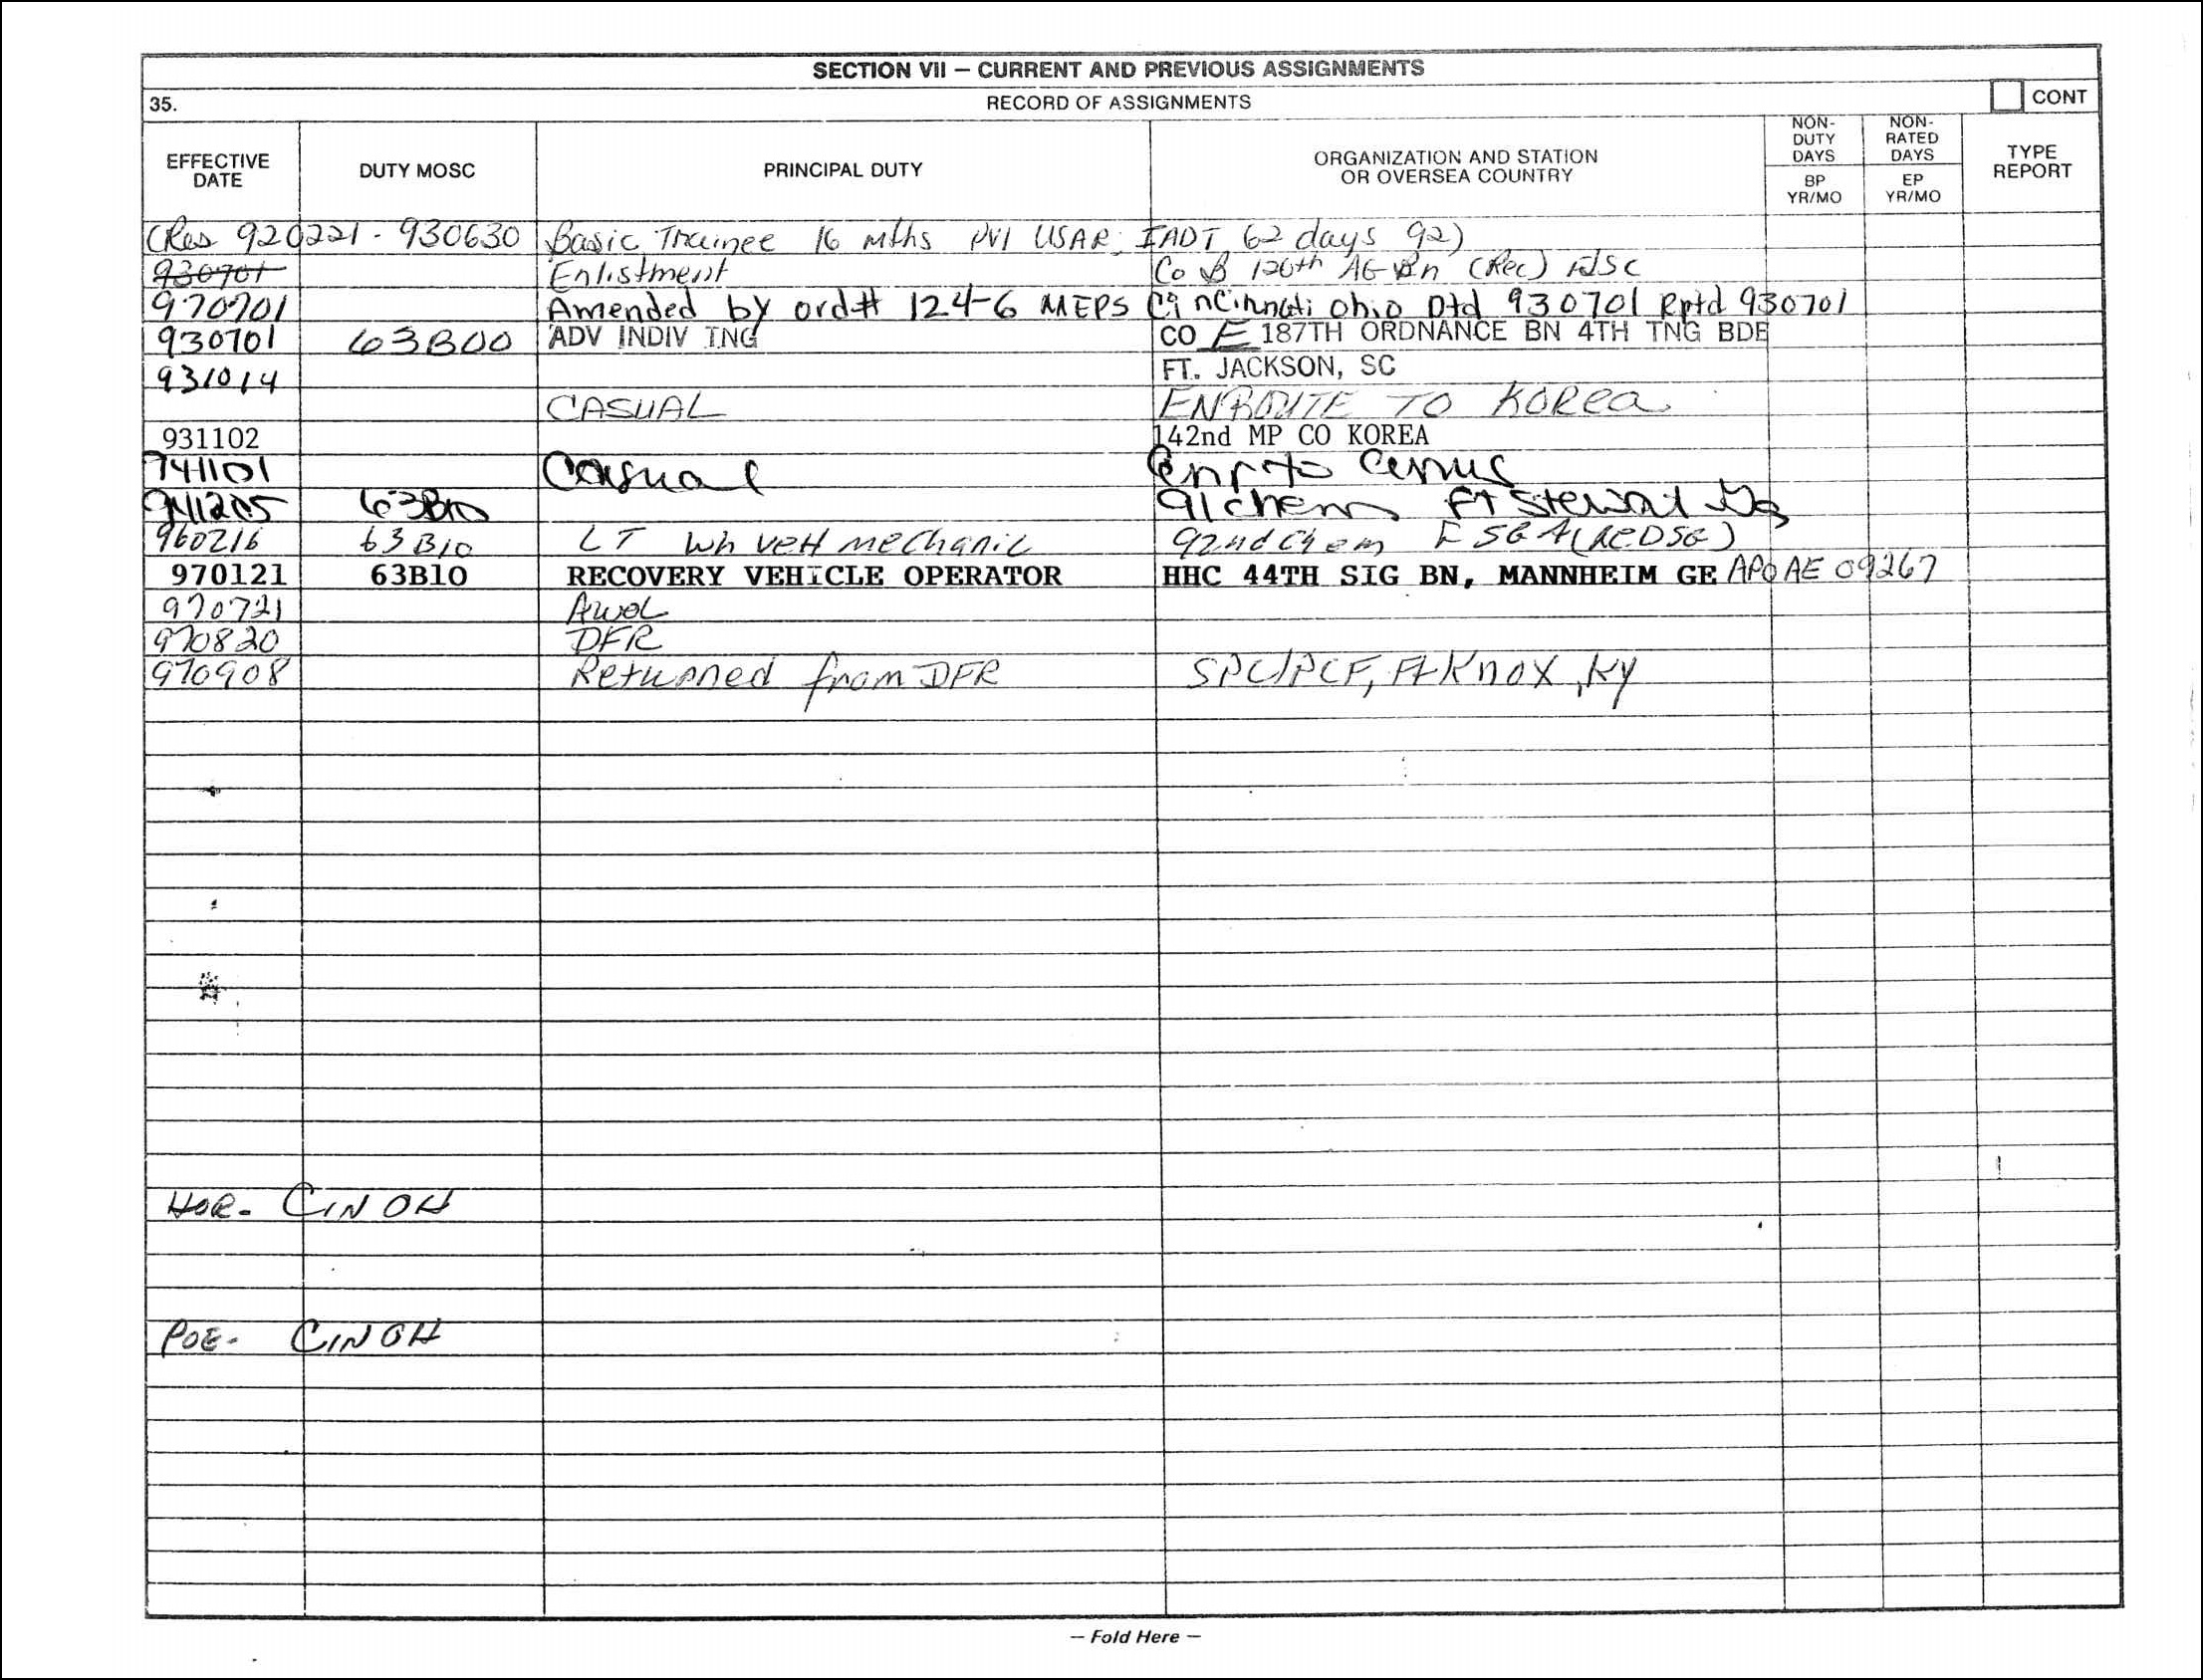 SECTION VII – CURRENT AND PREVIOUS ASSIGNMENTS
35. RECORD OF ASSIGNMENTS CONT
EFFECTIVE DATE DUTY MOSC PRINCIPAL DUTY ORGANIZATION AND STATION OR OVERSEA COUNTRY NON-DUTY DAYS NON-RATED DAYS TYPE REPORT
BP YR/MO EP YR/MO
(Res 920221 - 930630 Basic Trainee 16 mths PV1 USAR, IADT 62 days 92)
930701 Enlistment Co B 120th AG Bn (Rec) FJSC
970701 Amended by ord# 124-6 MEPS Cincinnati Ohio Dtd 930701 Rptd 930701
930701 63B00 ADV INDIV TNG CO E 187TH ORDNANCE BN 4TH TNG BDE
931014 FT. JACKSON, SC
CASUAL ENROUTE TO KOREA
931102 142nd MP CO KOREA
941101 Casual Enr to Conus
941205 63B10 91 chem Ft Stewart Ga
960216 63B10 LT Wh veH mechanic 92nd Chem
970121 63B10 RECOVERY VEHICLE OPERATOR HHC 44TH SIG BN, MANNHEIM GE APO AE 09267
970721 AWOL
970820 DFR
970908 Returned from DFR SPC/PCF, Ft Knox, Ky
HOR- CIN OH
POE- CIN OH
– Fold Here –